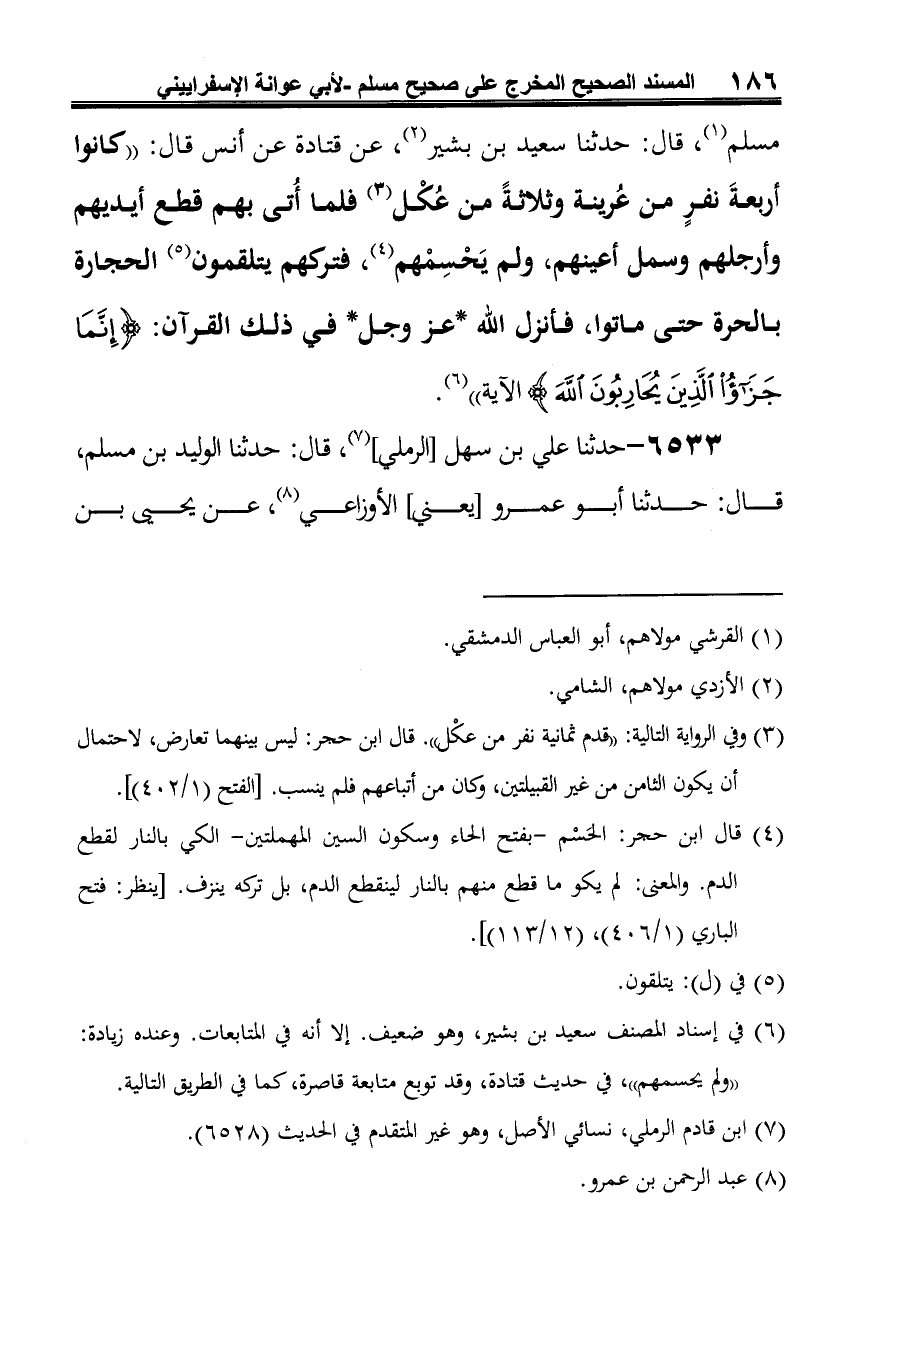 ١٨٦ المسند الصحيح المخرج على صحيح مسلم -لأبي عوانة الإسفراييني
مسلم(١)، قال: حدثنا سعيد بن بشير(٢)، عن قتادة عن أنس قال: ((كانوا
أربعةَ نفرٍ من عُرينة وثلاثةً من عُكْل(٣) فلما أُتى بهم قطع أيديهم
وأرجلهم وسمل أعينهم، ولم يَحْسِمْهم(٤)، فتركهم يتلقمون(٥) الحجارة
بالحرة حتى ماتوا، فأنزل الله *عز وجل* في ذلك القرآن: ﴿إِنَّمَا
جَزَٰٓؤُا۟ ٱلَّذِينَ يُحَارِبُونَ ٱللَّهَ﴾ الآية))(٦).
٦٥٣٣-حدثنا علي بن سهل [الرملي](٧)، قال: حدثنا الوليد بن مسلم،
قال: حدثنا أبو عمرو [يعني] الأوزاعي(٨)، عن يحيى بن
(١) القرشي مولاهم، أبو العباس الدمشقي.
(٢) الأزدي مولاهم، الشامي.
(٣) وفي الرواية التالية: ((قدم ثمانية نفر من عكْل)). قال ابن حجر: ليس بينهما تعارض، لاحتمال
أن يكون الثامن من غير القبيلتين، وكان من أتباعهم فلم ينسب. [الفتح (٤٠٢/١)].
(٤) قال ابن حجر: الحَسْم -بفتح الحاء وسكون السين المهملتين- الكي بالنار لقطع
الدم. والمعنى: لم يكو ما قطع منهم بالنار لينقطع الدم، بل تركه ينزف. [ينظر: فتح
الباري (٤٠٦/١)، (١١٣/١٢)].
(٥) في (ل): يتلقون.
(٦) في إسناد المصنف سعيد بن بشير، وهو ضعيف. إلا أنه في المتابعات. وعنده زيادة:
((ولم يحسمهم))، في حديث قتادة، وقد توبع متابعة قاصرة، كما في الطريق التالية.
(٧) ابن قادم الرملي، نسائي الأصل، وهو غير المتقدم في الحديث (٦٥٢٨).
(٨) عبد الرحمن بن عمرو.